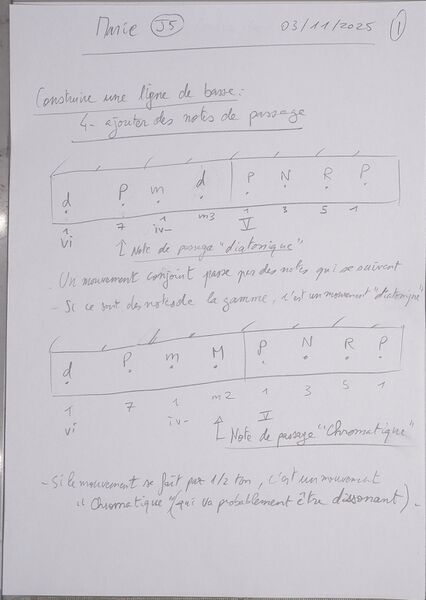 Marie J5 03/11/2025 1
Construire une ligne de basse :
4- ajouter des notes de passage
d P m d P N R P
1 7 1 m3 1 3 5 1
vi iv- V
Note de passage "diatonique"
- Un mouvement conjoint passe par des notes qui se suivent
- Si ce sont des notes de la gamme, c'est un mouvement "diatonique"
d P m M P N R P
1 7 1 m2 1 3 5 1
vi iv- V
Note de passage "Chromatique"
- Si le mouvement se fait par 1/2 ton, c'est un mouvement
"Chromatique" (qui va probablement être dissonant).